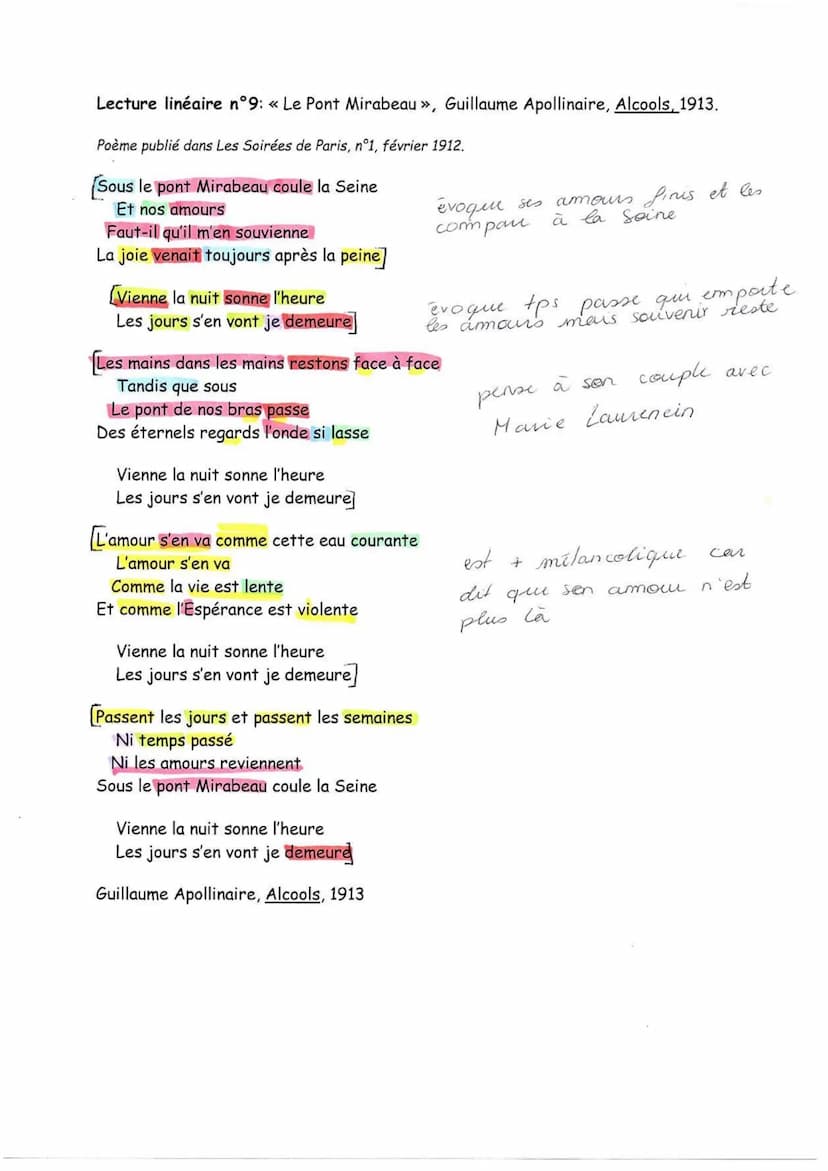 Lecture linéaire n°9: « Le Pont Mirabeau », Guillaume Apollinaire, Alcools, 1913.
Poème publié dans Les Soirées de Paris, n°1, février 1912.
[Sous le pont Mirabeau coule la Seine
Et nos amours
Faut-il qu'il m'en souvienne
La joie venait toujours après la peine]
évoque ses amours finis et les
compare à la Seine
[Vienne la nuit sonne l'heure
Les jours s'en vont je demeure]
évoque tps passe qui emporte
les amours mais souvenir reste
[Les mains dans les mains restons face à face
Tandis que sous
Le pont de nos bras passe
Des éternels regards l'onde si lasse
pense à son couple avec
Marie Laurencin
Vienne la nuit sonne l'heure
Les jours s'en vont je demeure]
[L'amour s'en va comme cette eau courante
L'amour s'en va
Comme la vie est lente
Et comme l'Espérance est violente
est + mélancolique car
dit que son amour n'est
plus là
Vienne la nuit sonne l'heure
Les jours s'en vont je demeure]
[Passent les jours et passent les semaines
Ni temps passé
Ni les amours reviennent
Sous le pont Mirabeau coule la Seine
Vienne la nuit sonne l'heure
Les jours s'en vont je demeure]
Guillaume Apollinaire, Alcools, 1913